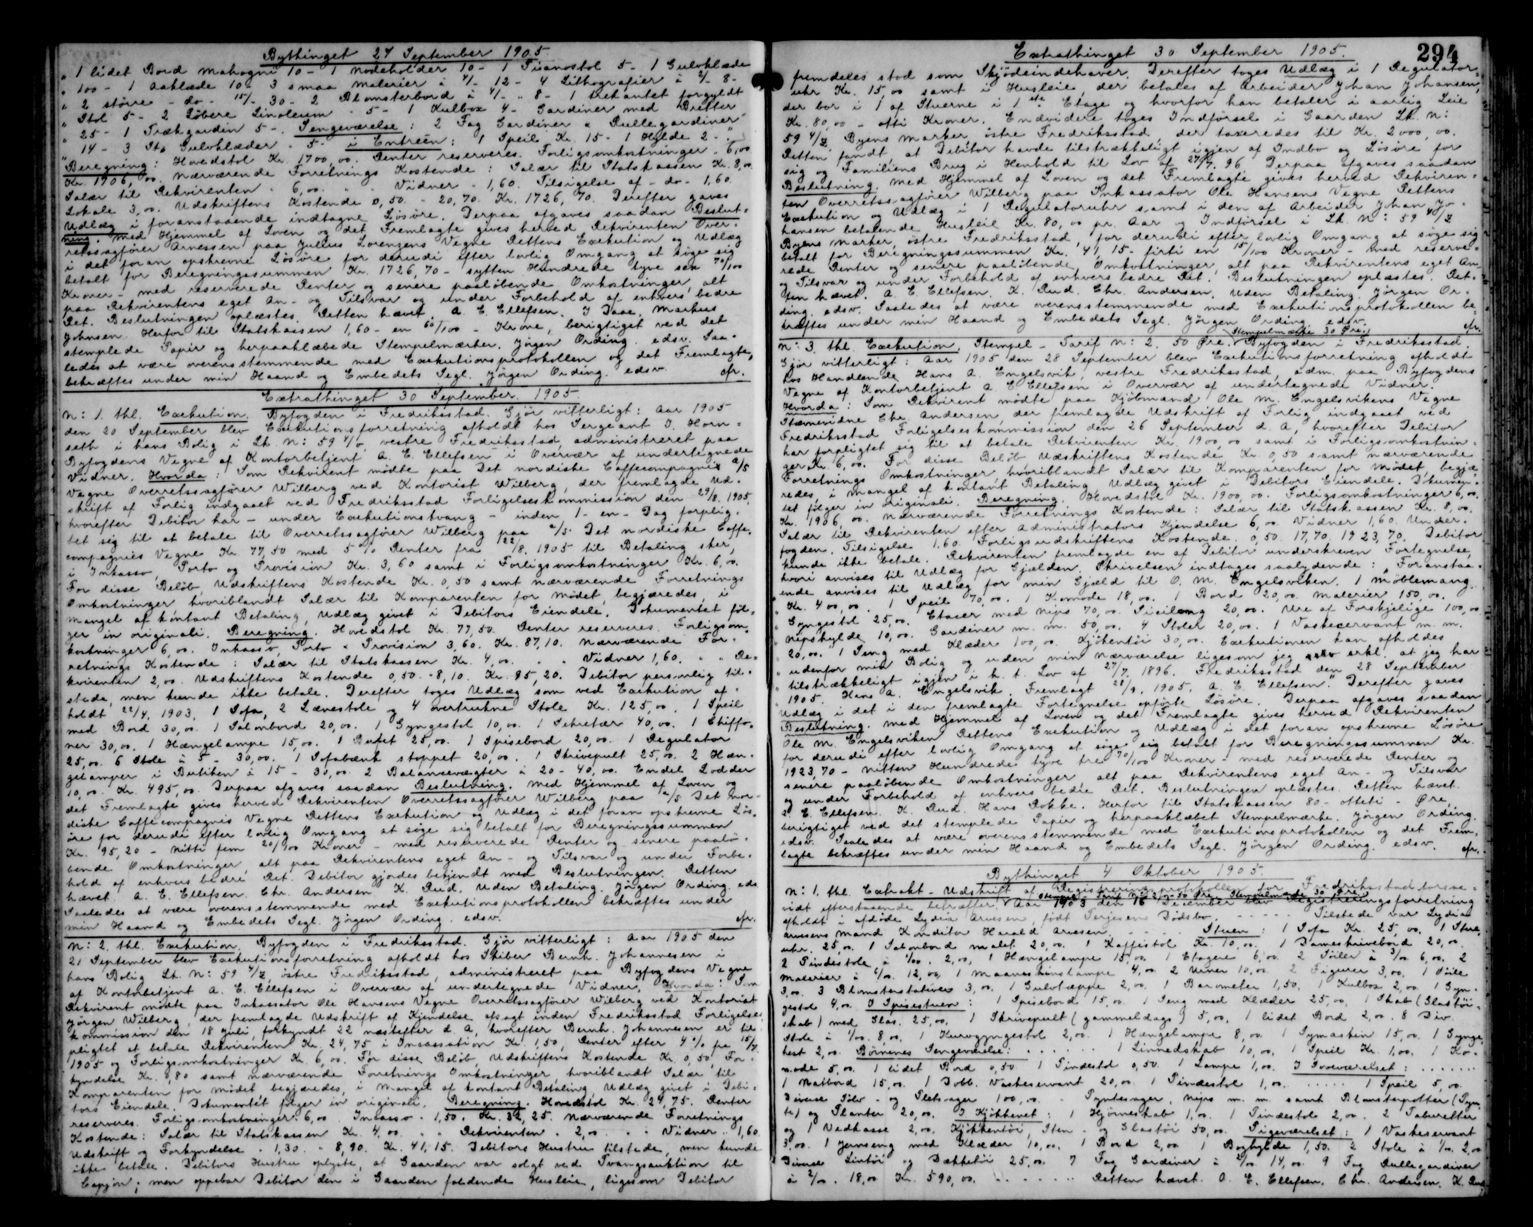 Bythinget 27 September 1905
" 1 lidet Bord mahogni 10 - 1 Nodeholder 10 - 1 Pianostol 5 - 1 Gulvklæde
" 100 - 1 Aaklæde 10 - 3 smaa malerier à 4/- 12 - 4 Lithografier à 2/- 8 -
" 2 større - do - 15/- 30 - 2 Blomsterbord à 4/- 8 - 1 forgyldt
" Stol 5 - 2 Löbere Linoleum - 5 - 1 Kulbox 4 - Gardiner med Bretter
" 25 - 1 Trækgardin 5 -. Sengeværelse: 2 Fag Gardiner & Rullegardiner
" 14 - 3 Stk Gulvklæder - 5 - i Entréen: 1 Speil Kr. 15 - 1 Hylde 2 -
Beregning: Hovedstol Kr. 1700,00. Renter reserveres. Forligsomkostninger - 6,00
Kr. 1706,00. nærværende Forretnings Kostende: Salær til Statskassen Kr. 8,00
Salær til Rekvirenten - 6,00. " Vidner - 1,60. Tilsigelse af - do - 1,60
Lokale 3,00. Udskriftens Kostende 0,50 - 20,70. Kr. 1726,70. Derefter gaves
Udlæg i foranstaaende indtagne Løsöre. Derpaa afgaves saadan Beslut-
ning: med Hjemmel af Loven og det Fremlagte gives herved Rekvirenten Over-
retssagfører Arnessen paa Julius Lorenzens Vegne Rettens Exekution og Udlæg
i det foran opskrevne Løsöre for derudi efter lovlig Omgang at søge sig
betalt for Beregningssummen Kr. 1726,70 - sytten Hundrede tyve sex 70/100
Kroner - med reserverede Renter og senere paaløbende Omkostninger, alt
paa Rekvirentens eget An- og Tilsvar og under Forbehold af enhvers bedre
Ret. Beslutningen oplæstes. Retten hævet. A. E. Ellefsen. J. Faae. Markus
Johnsen. Herfor til Statskassen 1,60 - en 60/100 - Krone, berigtiget ved det
stemplede Papir og herpaaklæbede Stempelmærker. Jørgen Ording edsv. Saa-
ledes at være overensstemmende med Exekutionsprotokollen og det Fremlagte,
bekræftes under min Haand og Embedets Segl. Jørgen Ording. edsv. afr.
Extrathinget 30 September 1905
N: 1. thl. Exekution. Byfogden i Fredriksstad. Gjör vitterligt: Aar 1905
den 20 September blev Exekutionsforretning afholdt hos Sergeant J. Horn-
seth i hans Bolig i Lb. N: 59 vestre Fredriksstad, administreret paa
Byfogdens Vegne af Kontorbetjent A. E. Ellefsen i Overvær af undertegnede
Vidner. Hvorda: Som Rekvirent mödte paa Det nordiske Caffecompagnis A/S
Vegne Overretssagfører Wilberg ved Kontorist Wilberg, der fremlagde Ud-
skrift af Forlig indgaaet ved Fredriksstad Forligelseskommission den 29/8. 1905
hvorefter Debitor har - under Exekutionstvang - inden 1 - en - Dag forplig-
tet sig til at betale til Overretssagfører Wilberg paa A/S Det nordiske Caffe-
compagnis Vegne Kr. 77,50 med 5 % Renter fra 22/8. 1905 til Betaling sker,
i Inkasso Porto og Provision Kr. 3,60 samt i Forligsomkostninger Kr. 6,00.
For disse Belöb, Udskriftens Kostende Kr. 0,50 samt nærværende Forretnings
Omkostninger hvoriblandt Salær til Komparenten for Mödet, begjæredes i
Mangel af kontant Betaling, Udlæg givet i Debitors Eiendele. Dokumentet føl-
ger in originali. Beregning. Hovedstol Kr. 77,50. Renter reserveres. Forligsom-
kostninger 6,00. Inkasso, Porto & Provision 3,60. Kr. 87,10. Nærværende For-
retnings Kostende: Salær til Statskassen Kr. 4,00. " Vidner 1,60. " Re-
kvirenten 2,00. Udskriftens Kostende 0,50. - 8,10. Kr. 95,20. Debitor personlig til-
stede, men kunde ikke betale. Derefter toges Udlæg som ved Exekution af-
holdt 22/4. 1903. 1 Sofa, 2 Lænestole og 4 overtrukne Stole Kr. 125,00. 1 Speil
med Bord 30,00. 1 Salonbord 20,00. 1 Gyngestol 10,00. 1 Sekretær 40,00. 1 Chiffo-
ner 30,00. 1 Hængelampe 15,00. 1 Bufet 25,00. 1 Spisebord 20,00. 1 Regulator
25,00. 6 Stole à 5 - 30,00. 1 Sofabænk stoppet 20,00. 1 Skrivepult 25,00. 2 Hæn-
gelamper i Butiken à 15 - 30,00. 2 Balancevægter à 20 - 40,00. Endel Lodder
10,00. Kr. 495,00. Derpaa afgaves saadan Beslutning: med Hjemmel af Loven og
det Fremlagte gives herved Rekvirenten Overretssagfører Wilberg paa A/S Det nor-
diske Caffecompagnis Vegne Rettens Exekution og Udlæg i det foran opskrevne Løs-
öre for derudi efter lovlig Omgang at søge sig betalt for Beregningssummen
Kr. 95,20 - nitti fem 20/100 Kroner - med reserverede Renter og senere paalö-
bende Omkostninger, alt paa Rekvirentens eget An- og Tilsvar og under Forbe-
hold af enhvers bedre Ret. Debitor gjordes bekjendt med Beslutningen. Retten
hævet. A. E. Ellefsen. Chr. Andersen K. Rud. Uden Betaling. Jørgen Ording. eds
Saaledes at være overensstemmende med Exekutionsprotokollen bekræftes under
min Haand og Embedets Segl. Jørgen Ording. edsv. afr.
N: 2. thl. Exekution. Byfogden i Fredriksstad. Gjör vitterligt: Aar 1905 den
21 September blev Exekutionsforretning afholdt hos Skiber Bernh. Johannesen i
hans Bolig Lb. N: 59 4/2 östre Fredriksstad, administreret paa Byfogdens Vegne
af Kontorbetjent A. E. Ellefsen i Overvær af undertegnede Vidner. Hvorda: Som
Rekvirent mödte paa Inkassator Ole Hansens Vegne Overretssagfører Wilberg ved Kontorist
Jørgen Wilberg, der fremlagde Udskrift af Kjendelse afsagt inden Fredriksstad Forligelses-
kommission den 18 Juli forkyndt 22 næstefter d. A, hvorefter Bernh. Johannesen er til-
pligtet at betale Rekvirenten Kr. 24,75 i Incassation Kr. 1,50, Renter efter 4 % fra 15/7
1905 og Forligsomkostninger Kr. 6,00. For disse Belöb Udskriftens Kostende Kr. 0,50 For-
kyndelse Kr. ,80 samt nærværende Forretnings Omkostninger hvoriblandt Salær til
Komparenten for Mödet begjæredes, i Mangel af kontant Betaling Udlæg givet i Debi-
tors Eiendele. Dokumentet følger in originali. Beregning. Hovedstol Kr. 24,75. Renter
reserveres. Forligsomkostninger 6,00 Incasso - 1,50. Kr. 32,25. Nærværende Forretnings
Kostende: Salær til Statskassen Kr. 4,00. Rekvirenten - 2,00. " Vidner - 1,60
Udskrift og Forkyndelse - 1,30. - 8,90. Kr. 41,15. Debitors Hustru tilstede, men kunde
ikke betale. Debitors Hustru oplyste, at Gaarden var solgt ved Tvangsauktion til
men oppebar Debitor den i Gaarden faldende Husleie, ligesom Debitor
Extrathinget 30 September 1905. 294
fremdeles stod som Skjødeindehaver. Derefter toges Udlæg i 1 Regulator-
uhr Kr. 15,00 samt i Husleie, der betales af Arbeider Johan Johansen,
der bor i 1 af Stuerne i 1ste Etage og hvorfor han betaler i aarlig Leie
Kr. 80,00 - otti Kroner. Endvidere toges Indförsel i Gaarden Lb. N:
59 4/2 Byens Marker östre Fredriksstad, der taxeredes til Kr. 2000,00.
Retten fandt at Debitor havde tilstrækkeligt igjen af Indbo og Løsöre for
sig og Familiens Brug i Henhold til Lov af 27/7. 96. Derpaa afgaves saadan
Beslutning: med Hjemmel af Loven og det Fremlagte gives herved Rekviren-
ten Overretssagfører Wilberg paa Inkassator Ole Hansens Vegne Rettens
Exekution og Udlæg i 1 Regulatoruhr samt i den af Arbeider Johan Jo-
hansen betalende Husleie Kr. 80,00 pr. Aar og Indförsel i Lb N: 59 4/2
Byens Marker, östre Fredriksstad, for derudi efter lovlig Omgang at søge sig
betalt for Beregningssummen Kr. 41,15 - firti en 15/100 Kroner - med reserve-
rede Renter og senere paalöbende Omkostninger, alt paa Rekvirentens eget An-
og Tilsvar og under Forbehold af enhvers bedre Ret. Beslutningen oplæstes. Ret-
ten hævet. A. E. Ellefsen. K. Rud. Chr. Andersen. Uden Betaling. Jörgen Or-
ding. edsv. Saaledes at være overensstemmende med Exekutionsprotokollen be-
kræftes under min Haand og Embedets Segl. Jörgen Ording edsv. afr.
Stempelmærke 30 Øre.
N: 3. thl. Exekution. Stempel - Tarif N: 2. 50 Øre. Byfogden i Fredriksstad.
Gjör vitterligt: Aar 1905 den 28 September blev Exekutionsforretning afholdt
hos Handlende Hans A. Engelsvik, vestre Fredriksstad, adm. paa Byfogdens
Vegne af Kontorbetjent A. E. Ellefsen i Overvær af undertegnede Vidner.
Hvorda: Som Rekvirent mödte paa Kjöbmand Ole M. Engelsvikens Vegne
Stævnevidne Chr. Andersen der fremlagde Udskrift af Forlig indgaaet ved
Fredriksstad Forligelseskommission den 26 September d. A., hvorefter Debitor
har forpligtet sig til at betale Rekvirenten Kr. 1900,00 samt i Forligsomkostnin-
ger Kr. 6,00. For disse Belöb Udskriftens Kostende Kr. 0,50 samt nærværende
Forretnings Omkostninger, hvoriblandt Salær til Komparenten for Mödet, begjæ-
redes, i Mangel af kontant Betaling Udlæg givet i Debitors Eiendele. Dokumen-
tet følger in originali. Beregning. Hovedstol Kr. 1900,00. Forligsomkostninger 6,00.
Kr. 1906,00. Nærværende Forretnings Kostende: Salær til Statskassen Kr. 8,00.
Salær til Rekvirenten efter Administrators Kjendelse 6,00. Vidner 1,60. Under-
fogden. Tilsigelse 1,60. Forligsudskriftens Kostende 0,50. 17,70. 1923,70. Debitor
kunde ikke betale. Rekvirenten fremlagde en af Debitor underskreven Fortegnelse,
hvori anvises til Udlæg for Gjælden. Skrivelsen indtages saalydende: "Foranstaa-
ende anvises til Udlæg for min Gjæld til O. M. Engelsviken. 1 Möblemang
" Kr. 400,00. 1 Speil 70,00. 1 Komode 18,00. 1 Bord 20,00. Malerier 150,00.
" Gyngestol 25,00. Etager med nips 70,00. 20,00. Ure af Forskjelige 100,00
" Nipshylde 10,00. Gardiner m. m. 50,00. 4 Stoler 20,00. 1 Vaskeservant m. m.
" 20,00. 1 Seng med Klæder 100,00. Kjökkentöi 30,00. Exekutionen kan afholdes
" udenfor min Bolig og uden min Nærværelse ligesom jeg erkl. at jeg har
" tilstrækkeligt igjen i h. t. Lov af 27/7. 1896. Fredriksstad den 28 September
" 1905. Hans A. Engelsvik. Fremlagt 28/9. 1905. A. E. Ellefsen." Derefter gaves
Udlæg i det i den fremlagte Fortegnelse opförte Løsöre. Derpaa afgaves saadan
Beslutning: med Hjemmel af Loven og det Fremlagte gives herved Rekvirenten
Ole M. Engelsviken Rettens Exekution og Udlæg i det foran opskrevne Løsöre
for derudi efter lovlig Omgang at søge sig betalt for Beregningssummen Kr.
1923,70 - nitten Hundrede tyve tre 70/100 Kroner - med reserverede Renter og
senere paalöbende Omkostninger alt paa Rekvirentens eget An- og Tilsvar
og under Forbehold af enhvers bedre Ret. Beslutningen oplæstes. Retten hævet.
A. E. Ellefsen. K. Rud. Hans Dokke. Herfor til Statskassen 80 - otteti - Øre,
berigtiget ved det stemplede Papir og herpaaklæbet Stempelmærke. Jörgen Ording.
edsv. Saaledes at være overensstemmende med Exekutionsprotokollen og det Frem-
lagte bekræftes under min Haand og Embedets Segl. Jörgen Ording edsv. afr.
Bythinget 4 Oktober 1905.
N: 1. thl. Extrakt - Udskrift af Registreringsprotokollen for Fredriksstad forsaa-
vidt efterstaaende betræffer: Aar 1903 den 16 blev Registreringsforretning
afholdt i afdöde Lydia Arnesen, født Terjesens Dödsbo. - - - - Tilstede var Lydia
Arnesens Mand Konditor Harald Arnesen. - - - - Stuen: 1 Sofa Kr. 25,00. 1 Stue-
uhr. 25,00. 1 Salonbord malet 20,00. 1 Kaffistol Kr. 10,00. 1 Dameskrivebord 20,00.
2 Pindestole à 1/00. 2,00, 1 Hængelampe 15,00. 1 Etagere 6,00. 2 Söiler à 3/00. 6,00. 2
Malerier à 6/00. 12,00. 1 Maaneskinslampe 4,00. 2 Urner 10,00. 2 Figurer 3,00. 1 Söile
3,00. 3 Blomsterstativer 3,00. 1 Gulvtæppe 2,00. 1 Barometer 1,50. 1 Kulbox 2,00. 1 Gyn-
gestol 4,00. I Spisestuen: 1 Spisebord 15,00. 1 Seng med Klæder 25,00. 1 Skab (Glastöi-
skab) med Glas. 25,00. 1 Skrivepult (gammeldags) 5,00. 1 lidet Bord 2,00. 8 Div.
Stole à 1/00. 8,00. 1 Kurvgyngestol 2,00. 1 Hængelampe 8,00. 1 Symaskin 15,00. 1 Gynge-
hest 2,00. Børnenes Sengeværelse: - - - - 1 Linnedskab 10,00. 1 Speil Kr. 1,00. 1 Ko-
mode 5,00. 1 lidet Bord 0,50 1 Pindestol 0,50. 1 Lampe 1,00. I Soveværelset: - - -
1 Natbord 15,00. 1 Dobb. Vaskeservant 20,00. 1 Pindestol 1,00. - - - - 1 Speil 5,00.
Diverse Sölv - og Pletsager 100,00. - Syntesager, nips m. m. samt Blomsterpotter
og Planter 20,00. I Kjökkenet: 1 Hjörneskab 1,00. 1 Pindestole 2,00. 2 Taburetter
og 1 Vedkasse 2,00. Kjökkentöi Sten - og Glastöi 50,00. Pigeværelset: 1 Vaskeservant
3,00. 1 Jernseng med Klæder 10,00. 1 Bord 2,00. Boghylde 1,50. 2 Stole à 1/00 2,00
Diverse Lintöi og Dækketöi 25,00. 7 Fag Gardiner à 2/00 14,00. 9 Fag Rullegardiner
à 2/00. 18,00 Kr. 590,00. - - - - Retten hævet. A. E. Ellefsen. Chr. Andersen. K. Rud